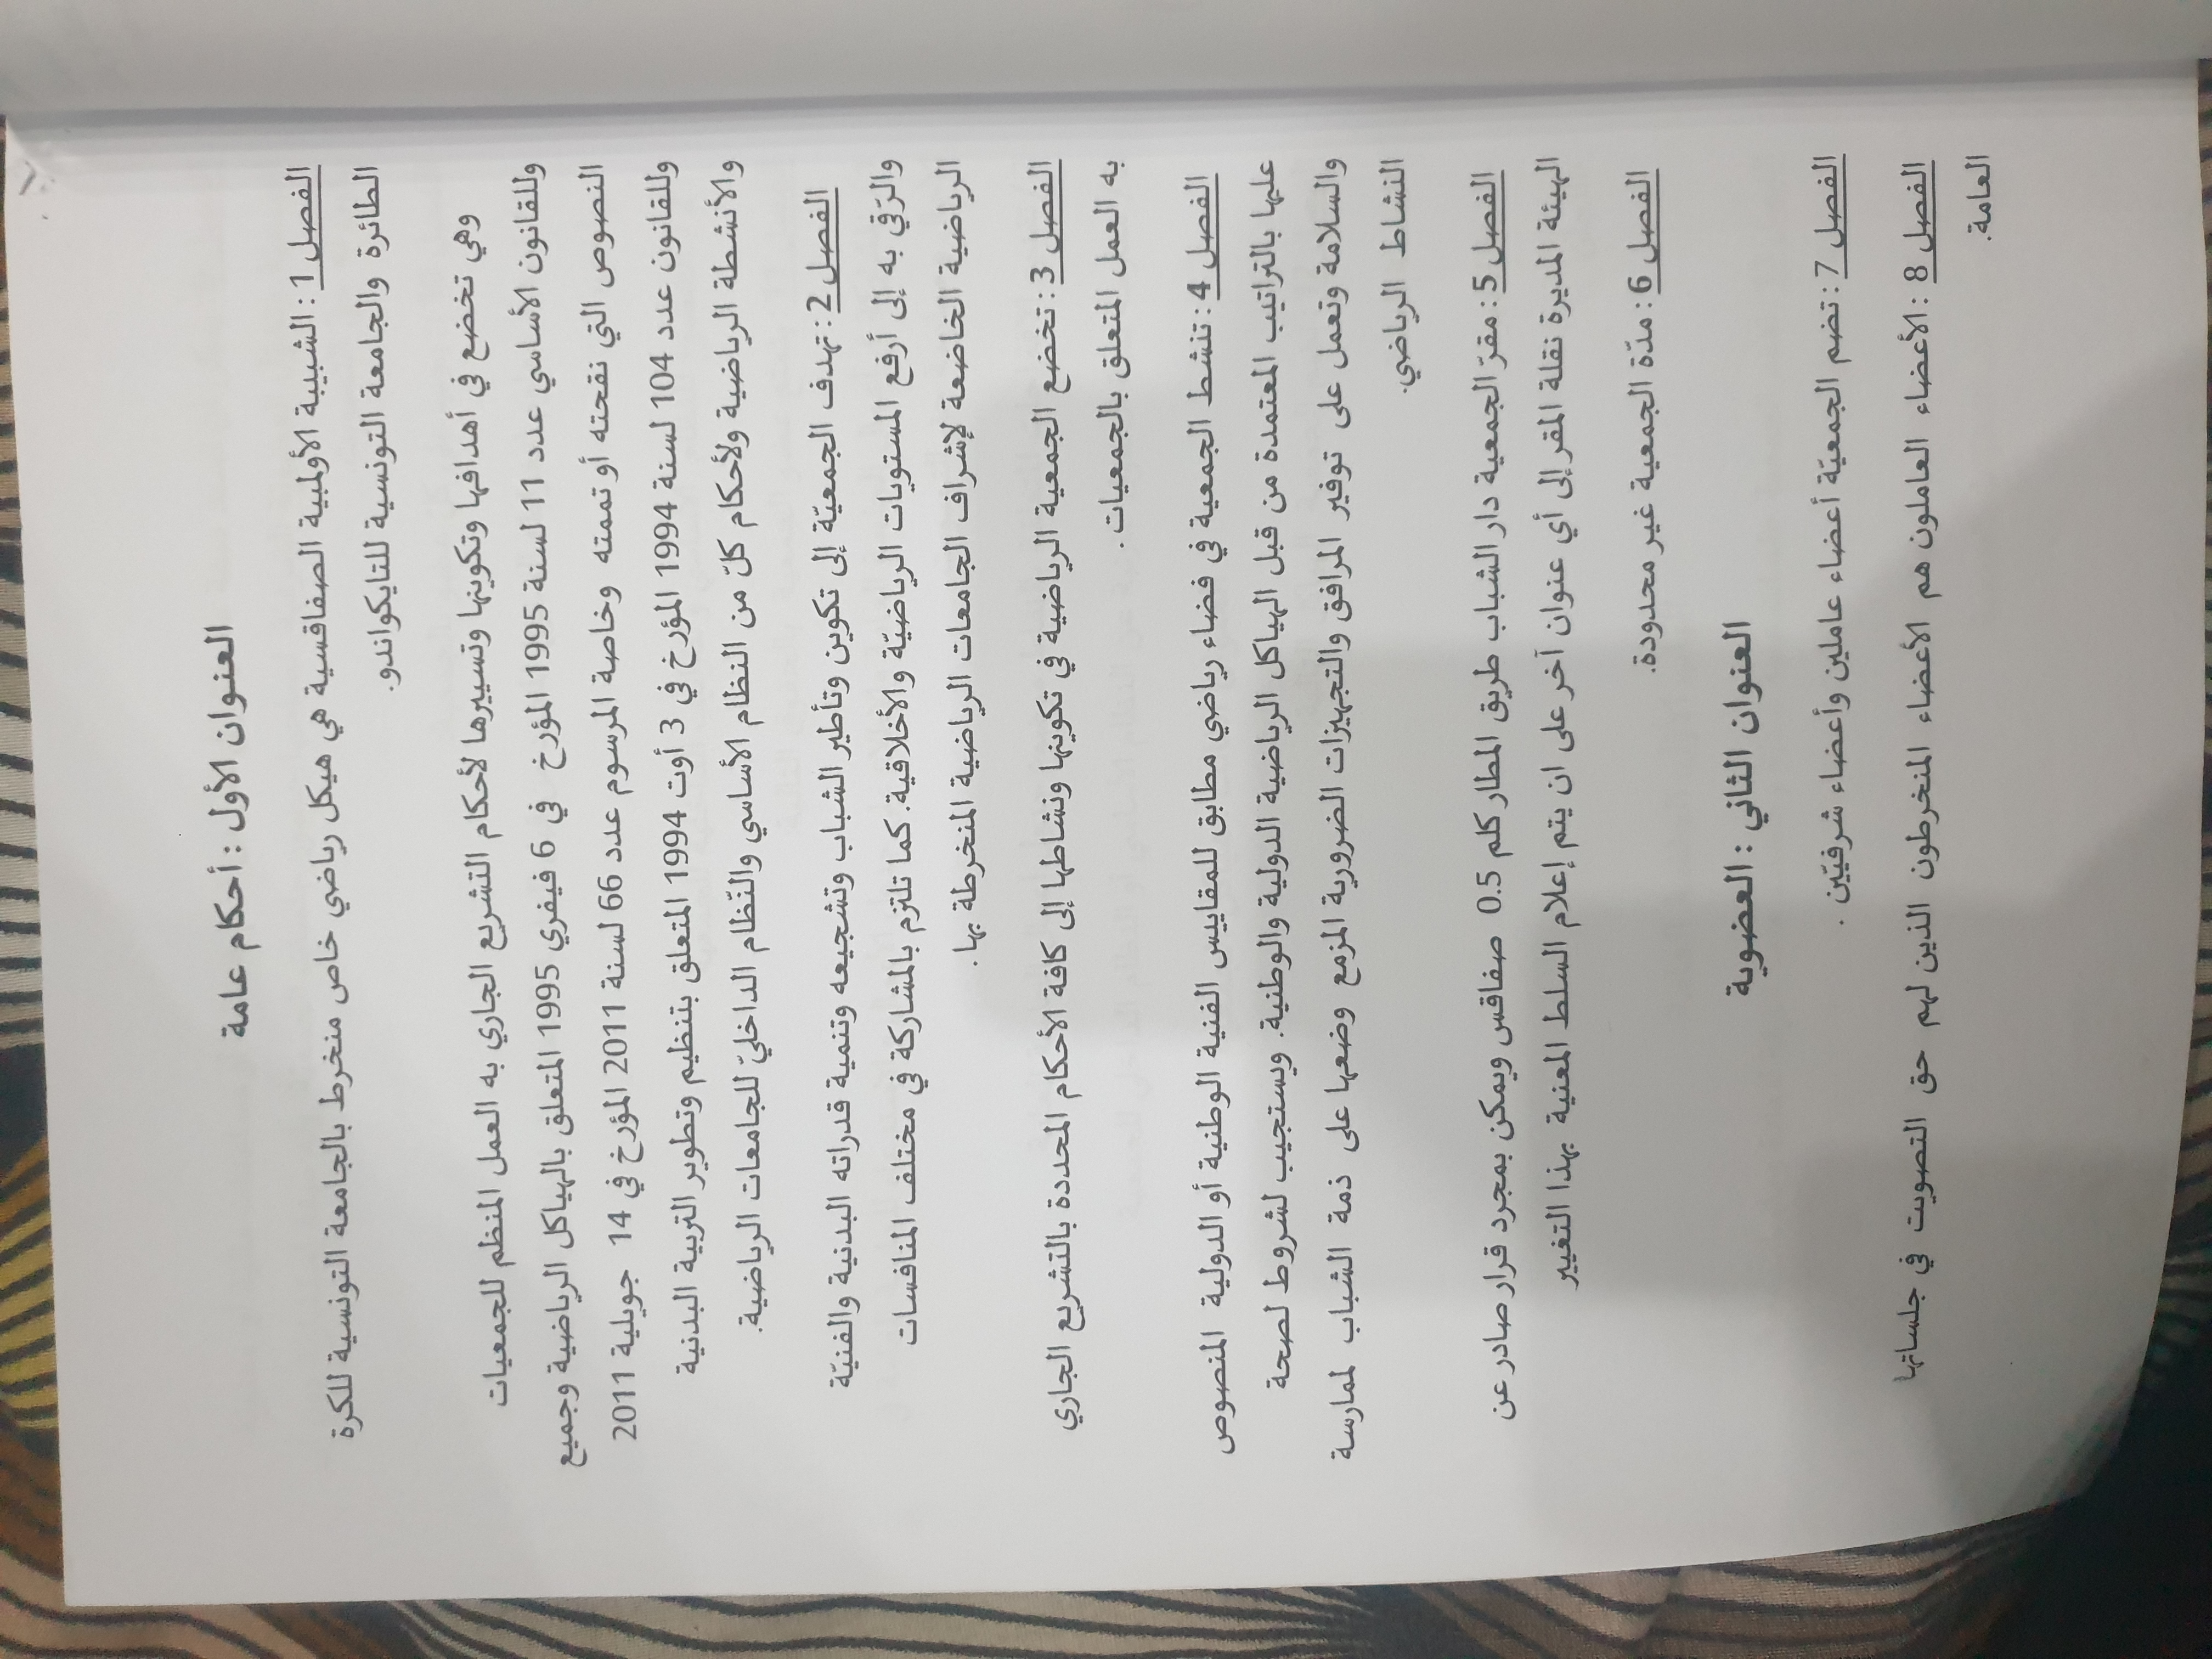 العنوان الأول : أحكام عامة
الفصل 1 : الشبيبة الأولمبية الصفاقسية هي هيكل رياضي خاص منخرط بالجامعة التونسية للكرة
الطائرة والجامعة التونسية للتايكواندو.
وهي تخضع في أهدافها وتكوينها وتسييرها لأحكام التشريع الجاري به العمل المنظم للجمعيات
وللقانون الأساسي عدد 11 لسنة 1995 المؤرخ في 6 فيفري 1995 المتعلق بالهياكل الرياضية وجميع
النصوص التي نقحته أو تممته وخاصة المرسوم عدد 66 لسنة 2011 المؤرخ في 14 جويلية 2011
وللقانون عدد 104 لسنة 1994 المؤرخ في 3 أوت 1994 المتعلق بتنظيم وتطوير التربية البدنية
والأنشطة الرياضية ولأحكام كلّ من النظام الأساسي والنّظام الداخليّ للجامعات الرياضية.
الفصل 2 : تهدف الجمعيّة إلى تكوين وتأطير الشباب وتشجيعه وتنمية قدراته البدنية والفنيّة
والرّقي به إلى أرفع المستويات الرياضيّة والأخلاقية. كما تلتزم بالمشاركة في مختلف المنافسات
الرياضية الخاضعة لإشراف الجامعات الرياضية المنخرطة بها.
الفصل 3 : تخضع الجمعية الرياضية في تكوينها ونشاطها إلى كافة الأحكام المحددة بالتشريع الجاري
به العمل المتعلق بالجمعيات .
الفصل 4 : تنشط الجمعية في فضاء رياضي مطابق للمقاييس الفنية الوطنية أو الدولية المنصوص
عليها بالتراتيب المعتمدة من قبل الهياكل الرياضية الدولية والوطنية. ويستجيب لشروط لصحة
والسلامة وتعمل على توفير المرافق والتجهيزات الضرورية المزمع وضعها على ذمة الشباب لممارسة
النشاط الرياضي.
الفصل 5 : مقرّ الجمعية دار الشباب طريق المطار كلم 0.5 صفاقس ويمكن بمجرد قرار صادر عن
الهيئة المديرة نقلة المقر إلى أي عنوان آخر على ان يتم إعلام السلط المعنية بهذا التغيير
الفصل 6 : مدّة الجمعية غير محدودة.
العنوان الثاني : العضوية
الفصل 7 : تضم الجمعيّة أعضاء عاملين وأعضاء شرفيّين .
الفصل 8 : الأعضاء العاملون هم الأعضاء المنخرطون الذين لهم حق التصويت في جلساتها
العامة.